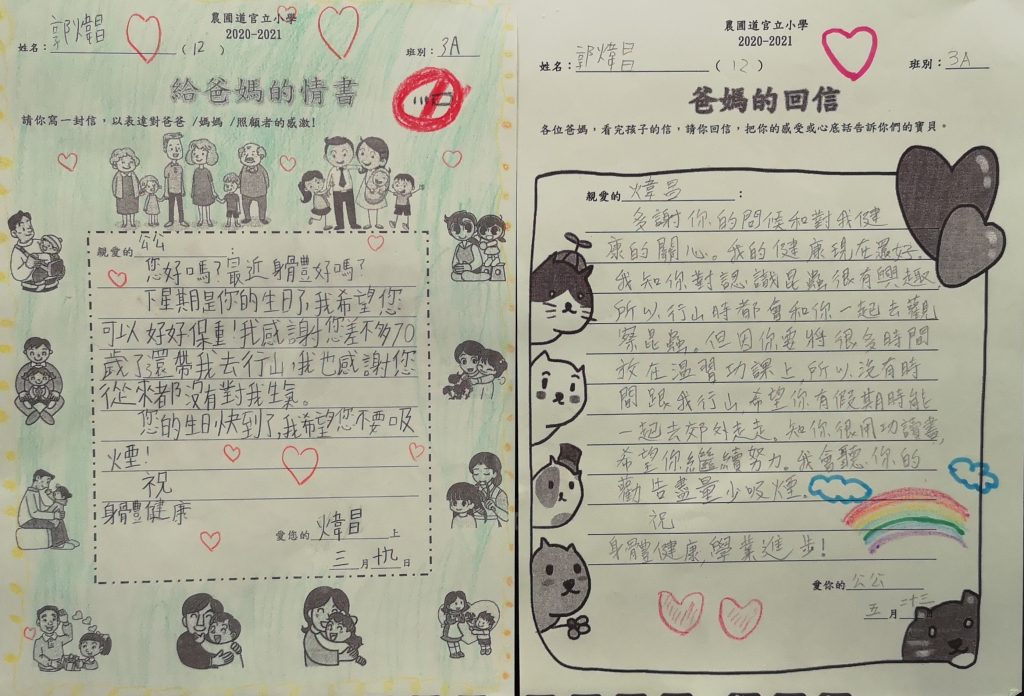 農圃道官立小學
2020-2021
姓名：郭煒昌（12） 班別：3A
給爸媽的情書
請你寫一封信，以表達對爸爸/媽媽/照顧者的感激!
親愛的公公
您好嗎？最近身體好嗎？
下星期是你的生日了,我希望您
可以好好保重！我感謝您差不多70
歲了還帶我去行山,我也感謝您
從來都沒有對我生氣。
您的生日快到了,我希望您不要吸
煙！
祝
身體健康
愛您的 煒昌 上
三月 十九 日
農圃道官立小學
2020-2021
姓名：郭煒昌（12） 班別：3A
爸媽的回信
各位爸媽，看完孩子的信，請你回信，把你的感受或心底話告訴你們的寶貝。
親愛的 煒昌 ：
多謝你的問候和對我健
康的關心。我的健康現在還好。
我知你對認識昆蟲很有興趣,
所以行山時都會和你一起去觀
察昆蟲。但因你要將很多時間
放在溫習功課上,所以沒有時
間跟我行山,希望你有假期時能
一起去郊外走走。知你很用功讀書,
希望你繼續努力。我會聽你的
勸告盡量少吸煙.
祝
身體健康,學業進步!
愛你的 公公
五月 二十三